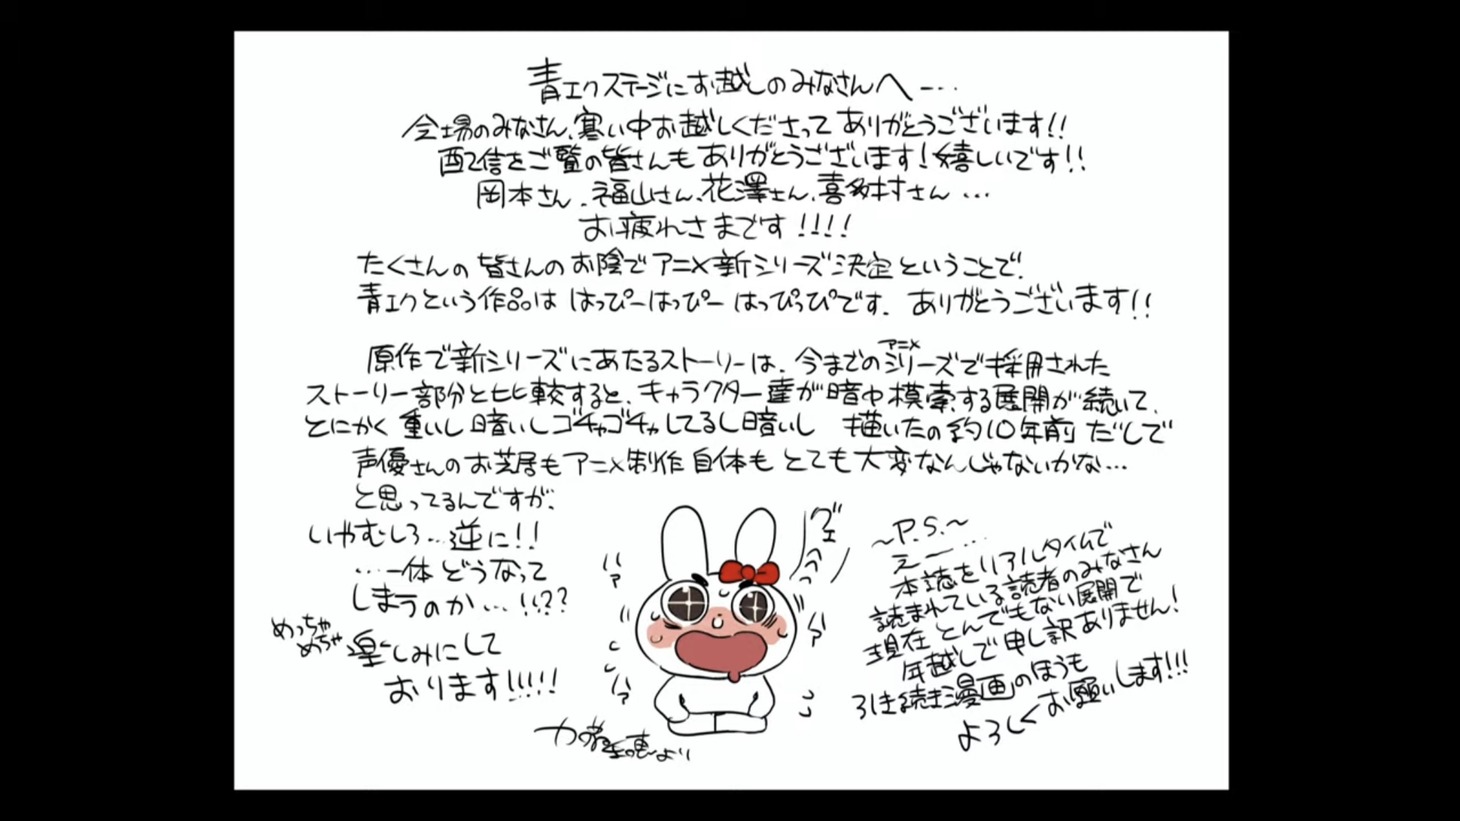 青エクステージにお越しのみなさんへ…
会場のみなさん、寒い中お越しくださってありがとうございます!!
配信をご覧の皆さんもありがとうございます!嬉しいです!!
岡本さん、福山さん、花澤さん、喜多村さん…
お疲れさまです!!!!
たくさんの皆さんのお陰でアニメ新シリーズ決定ということで、
青エクという作品は はっぴーはっぴー はっぴっぴです。ありがとうございます!!
原作で新シリーズにあたるストーリーは、今までのアニメシリーズで採用された
ストーリー部分と比較すると、キャラクター達が暗中模索する展開が続いて、
とにかく重いし暗いしゴチャゴチャしてるし暗いし 描いたの約10年前だしで
声優さんのお芝居もアニメ制作自体もとても大変なんじゃないかな…
と思ってるんですが、
いやむしろ…逆に!!
…一体どうなって
しまうのか…!!??
めっちゃ
めちゃ楽しみにして
おります!!!!!
加藤和恵より
グェ
ヘヘ
ハァ
ハァ
ハァ
〜P.S.〜
え〜…
本誌をリアルタイムで
読まれている読者のみなさん
現在とんでもない展開で
年越しで申し訳ありません!
引き続き漫画のほうも
よろしくお願いします!!!